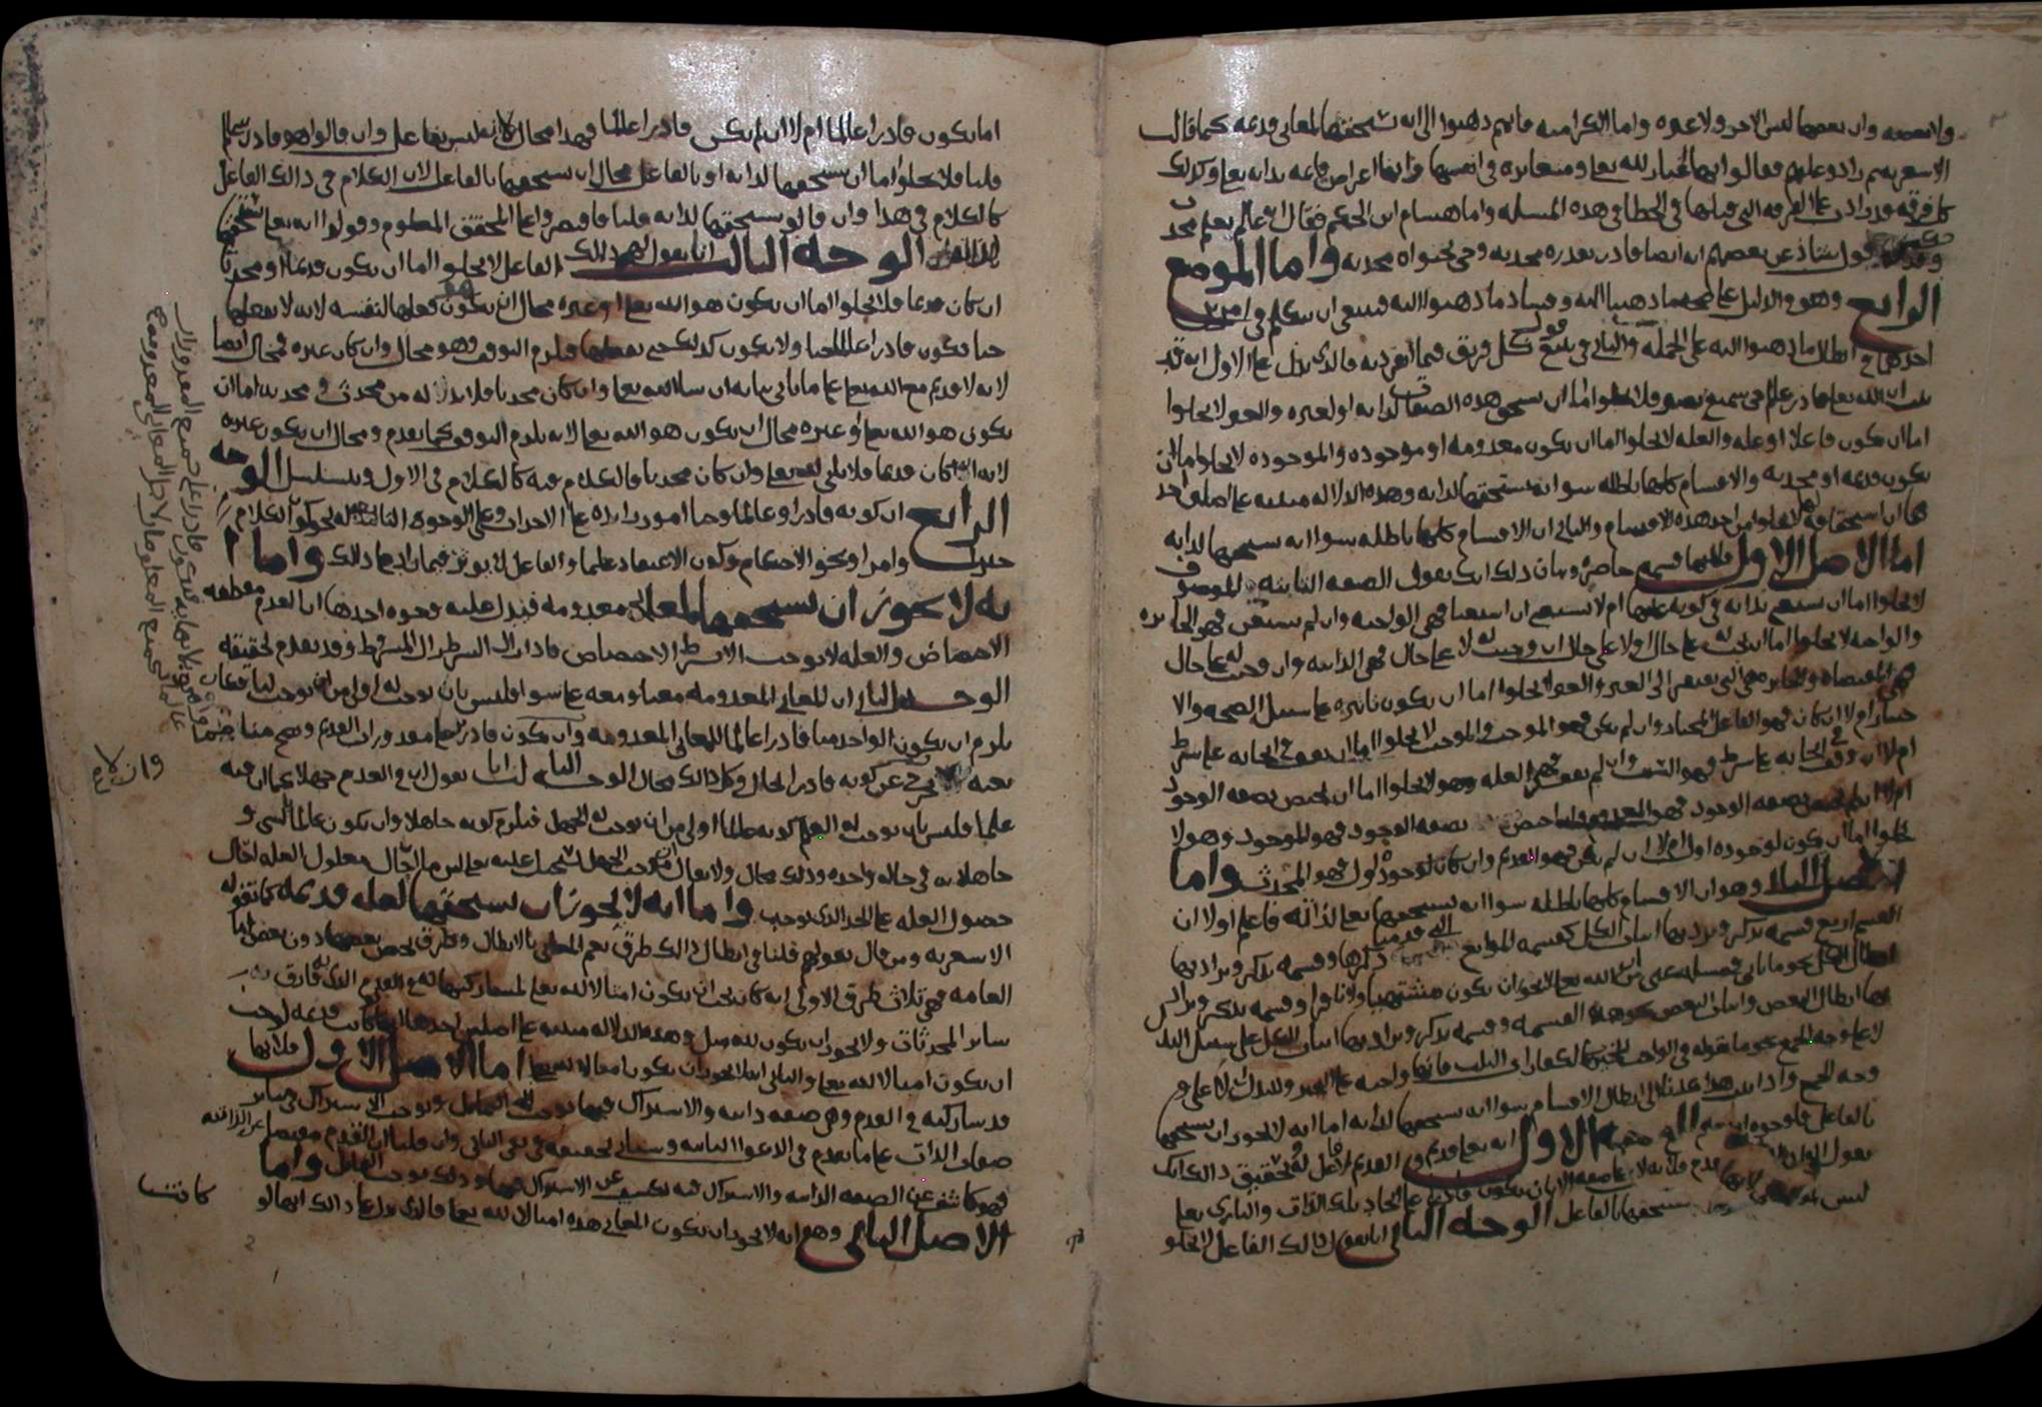 ولا بعضه وان بعضها ليس الاخر ولا غيره واما الكراميه فانهم ذهبوا الى انه يستحقها لمعاني قديمه كما قالت
الاشعريه ثم زادوا عليهم فقالوا انها اغيار لله تعالى ومتغايره في انفسها وانها اعراض قائمه بذاته تعالى وكذلك
كل فرقه قد زادت على الفرقه التي قبلها في الخطا في هذه المسله واما هشام ابن الحكم فقال انه عالم بعلم محدث
قول شاذ عن بعضهم انه ايضا قادر بقدره محدثه وحي بحياه محدثه واما الموضع
الرابع وهو في الدليل على صحه ما ذهبنا اليه وفساد ما ذهبوا اليه فينبغي ان يتكلم في امرين
احدهما في ابطال ما ذهبوا اليه على الجمله والثاني في تتبع قول كل فريق فيما انفرد به فالذي يدل على الاول انه قد
ثبت ان الله تعالى قادر عالم حي سميع بصير فلا يخلوا اما ان يستحق هذه الصفات لذاته او لغيره والغير لا يخلوا
اما ان يكون فاعلا او عله والعله لا يخلوا اما ان يكون معدومه او موجوده والموجوده لا يخلوا اما ان
يكون قديمه او محدثه والاقسام كلها باطله سوا انه يستحقها لذاته وهذه الدلاله مبنيه على اصلين احد
هما ان استحقاقه لها لا يخلوا من احد هذه الاقسام والثاني ان الاقسام كلها باطله سوا انه يستحقها لذاته
اما الاصل الاول فلانها قسمه حاصره وبيان ذلك انك تقول الصفه الثابته للموصوف
لا يخلوا اما ان
والواجبه لا يخلوا اما ان تجب له على حال او لا على حال ان وجبت له لا على حال فهي الذاتيه وان وجبت له على حال
فهي المقتضاه والجايزه هي التي تفتقر الى الغير والغير لا يخلوا اما ان يكون تاثيره على سبيل الصحه والا
ختيار ام لا ان كان فهو الفاعل المختار وان لم يكن فهو الموجب والموجب لا يخلوا اما ان يقف في ايجابه على شرط
ام لا ان وقف في ايجابه على شرط فهو السبب وان لم يقف فهو العله وهو لا يخلوا اما ان يختص بصفه الوجود
ام لا ان لم يختص بصفه الوجود فهو المعدوم وان اختص بصفه الوجود فهو الموجود وهو لا
يخلوا اما ان يكون لوجوده اول ام لا ان لم يكن فهو القديم وان كان لوجوده اول فهو المحدث واما
الاصل الثاني وهو ان الاقسام كلها باطله سوا انه يستحقها تعالى لذاته فاعلم اولا ان
القسم اربع قسمه تذكر ويراد بها اثبات الكل كقسمه المواضع التي قدمنا ذكرها وقسمه تذكر ويراد بها
ابطال الكل نحو ما ياتي في مسله غني ان الله تعالى لا يجوز ان يكون مشتهيا ولا نافرا وقسمه تذكر ويراد
بها ابطال البعض واثبات البعض كهذه القسمه وقسمه تذكر ويراد بها اثبات الكل على سبيل البدل
لا على وجه الجمع نحو ما نقوله في الواجب المخير كالكفارات الثلاث فانها واجبه على التخيير والبدل لا على
وجه الجمع واذا ثبت هذا عدنا الى ابطال الاقسام سوا انه يستحقها لذاته اما انه لا يجوز ان يستحقها
بالفاعل فلوجوه اربعه الوجه الاول انه تعالى قديم والقديم لا فاعل له وتحقيق ذلك انك
ليس يستحقها بالفاعل الوجه الثاني انا نقول ذلك الفاعل لا يخلو
اما يكون قادرا عالما ام لا ان لم يكن قادرا عالما فهذا محال لانه ليس بفاعل وان قالوا هو قادر عالم
قلنا فلا يخلوا اما ان يستحقها لذاته او بالفاعل محال ان يستحقها بالفاعل لان الكلام في ذلك الفاعل
كالكلام في هذا وان قالو يستحقها لذاته قلنا فاقتصروا على المحقق المعلوم وقولوا انه تعالى يستحقها
لذاته الوجه الثالث انا نقول لهم ذلك الفاعل لا يخلوا اما ان يكون قديما او محدثا
ان كان قديما فلا يخلوا اما ان يكون هو الله تعالى او غيره محال ان يكون فعلها لنفسه لانه لا يفعلها
حتا يكون قادرا عالما حيا ولا يكون كذلك حتى يفعلها فيلزم التوقف وهو محال وان كان غيره فمحال ايضا
لانه لا قديم مع الله تعالى على ما ياتي بيانه ان شا الله تعالى وان كان محدثا فلا بد له من محدث ومحدثه اما ان
يكون هو الله تعالى او غيره محال ان يكون هو الله تعالى لانه يلزم التوقف كما تقدم ومحال ان يكون غيره
لانه ان كان قديما فلا ثاني لله تعالى وان كان محدثا فالكلام فيه كالكلام في الاول ويتسلسل الوجه
الرابع ان كونه قادرا وعالما وحيا امور زايده على الاحداث وعلى الوجوه التابعه له نحو كون الكلام
خبرا وامرا ونحو الاحكام وكون الاعتقاد علما والفاعل لا يوثر فيما زاد على ذلك واما ا
نه لا يجوز ان يستحقها لمعاني معدومه فيدل عليه وجوه احدها ان العدم مقطعه
الاختصاص والعله لا توجب الا بشرط الاختصاص فاذا زال الشرط زال المشروط وقد تقدم تحقيقه
الوجه الثاني ان المعاني المعدومه معنا ومعه على سوا فليس بان توجب له اولى من ان توجب لنا فكان
يلزم ان يكون الواحد منا قادرا عالما للمعاني المعدومه وان يكون قادرا على مقدورات القديم وصح منا
عن كونه قادرا لحال وكل ذلك محال الوجه الثالث انا نقول ان في العدم جهلا كما ان فيه
علما فليس بان يوجب له العلم كونه عالما اولى من ان يوجب له الجهل فيلزم كونه جاهلا وان يكون عالما بالشي و
جاهلا به في حاله واحده وذلك محال ولا يقال ان موجب الجهل يستحيل عليه تعالى
حصول العله على الحد الذي توجب واما انه لا يجوز ان يستحقها لعله قديمه كما تقوله
الاشعريه ومن قال بقولهم فلنا في ابطال ذلك طرق تعم المعاني بالابطال وطرق تخص بعضها دون بعض اما
العامه فهي ثلاث طرق الاولى انه كان يجب ان يكون امثالا لله تعالى لمشاركتها له في القدم الذي به فارق
ساير المحدثات ولا يجوز ان يكون لله مثل وهذه الدلاله مبنيه على اصلين احدهما انها لو كانت قديمه لوجب
ان يكون امثالا لله تعالى والثاني انه لا يجوز ان يكون امثالا لله تعالى اما الاصل الاول فلانها
قد شاركته في القدم وهي صفه ذاتيه والاشتراك فيها يوجب التماثل ويوجب الاشتراك في ساير
صفات الذات على ما تقدم وان قلنا ان القدم مقتضا عن الذاتيه
فهو كاشف عن الصفه الذاتيه والاشتراك فيه يكشف عن الاشتراك فيها وذلك يوجب التماثل واما
الاصل الثاني وهو انه لا يجوز ان يكون المعاني هذه امثالا لله تعالى فالذي يدل على ذلك انها لو
كانت